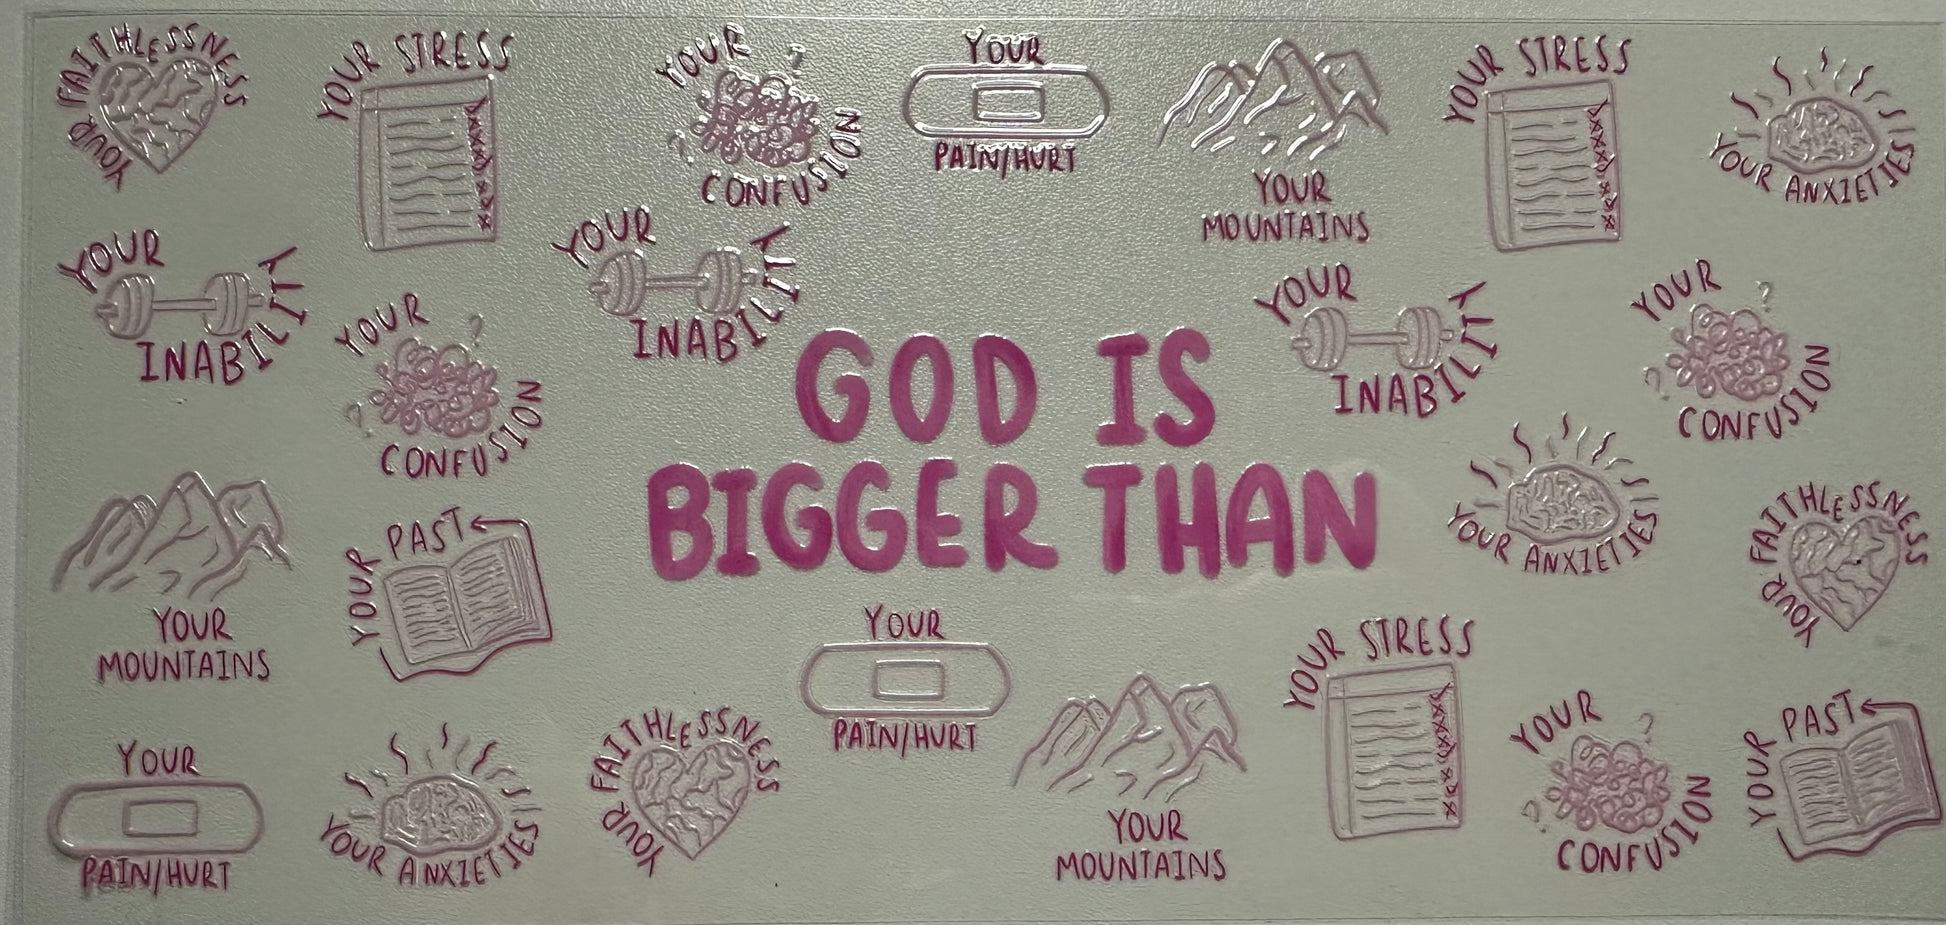 YOUR FAITHLESSNESS
YOUR STRESS
YOUR
CONFUSION
YOUR
PAIN/HURT
YOUR
MOUNTAINS
YOUR STRESS
YOUR ANXIETIES
YOUR
INABILITY
YOUR
CONFUSION
YOUR
INABILITY
GOD IS
BIGGER THAN
YOUR
INABILITY
YOUR
CONFUSION
YOUR
MOUNTAINS
YOUR PAST
YOUR ANXIETIES
YOUR FAITHLESSNESS
YOUR
PAIN/HURT
YOUR ANXIETIES
YOUR FAITHLESSNESS
YOUR
PAIN/HURT
YOUR
MOUNTAINS
YOUR STRESS
YOUR
CONFUSION
YOUR PAST